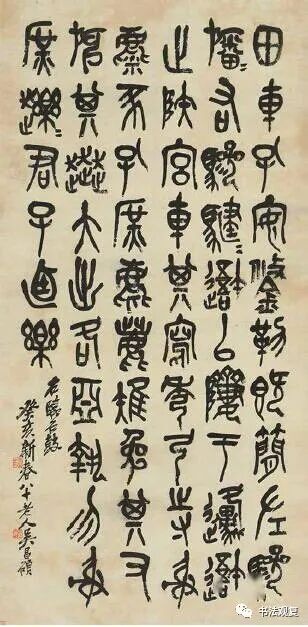 田車孔安鋚勒既簡左驂
旛〻右驂騝〻以隮于邍
止陕宮車其寫秀弓寺射
麋豕孔庶麀鹿雉兔其又
旃其大出各亞執勿射
庶轢〻君子逌樂
右臨石鼓
癸亥新春八十老人吳昌碩
书法观复